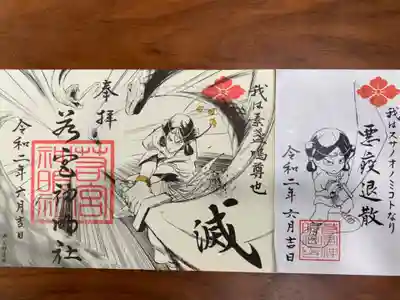 我はスサノオノミコトなり
悪疫退散
令和二年六月吉日
我は素盞嗚尊也
滅
奉拝
若宮神明社
令和二年六月吉日